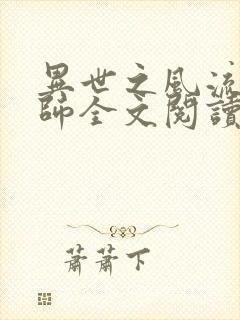 異世之風流
師全文閱讀
蕭蕭下